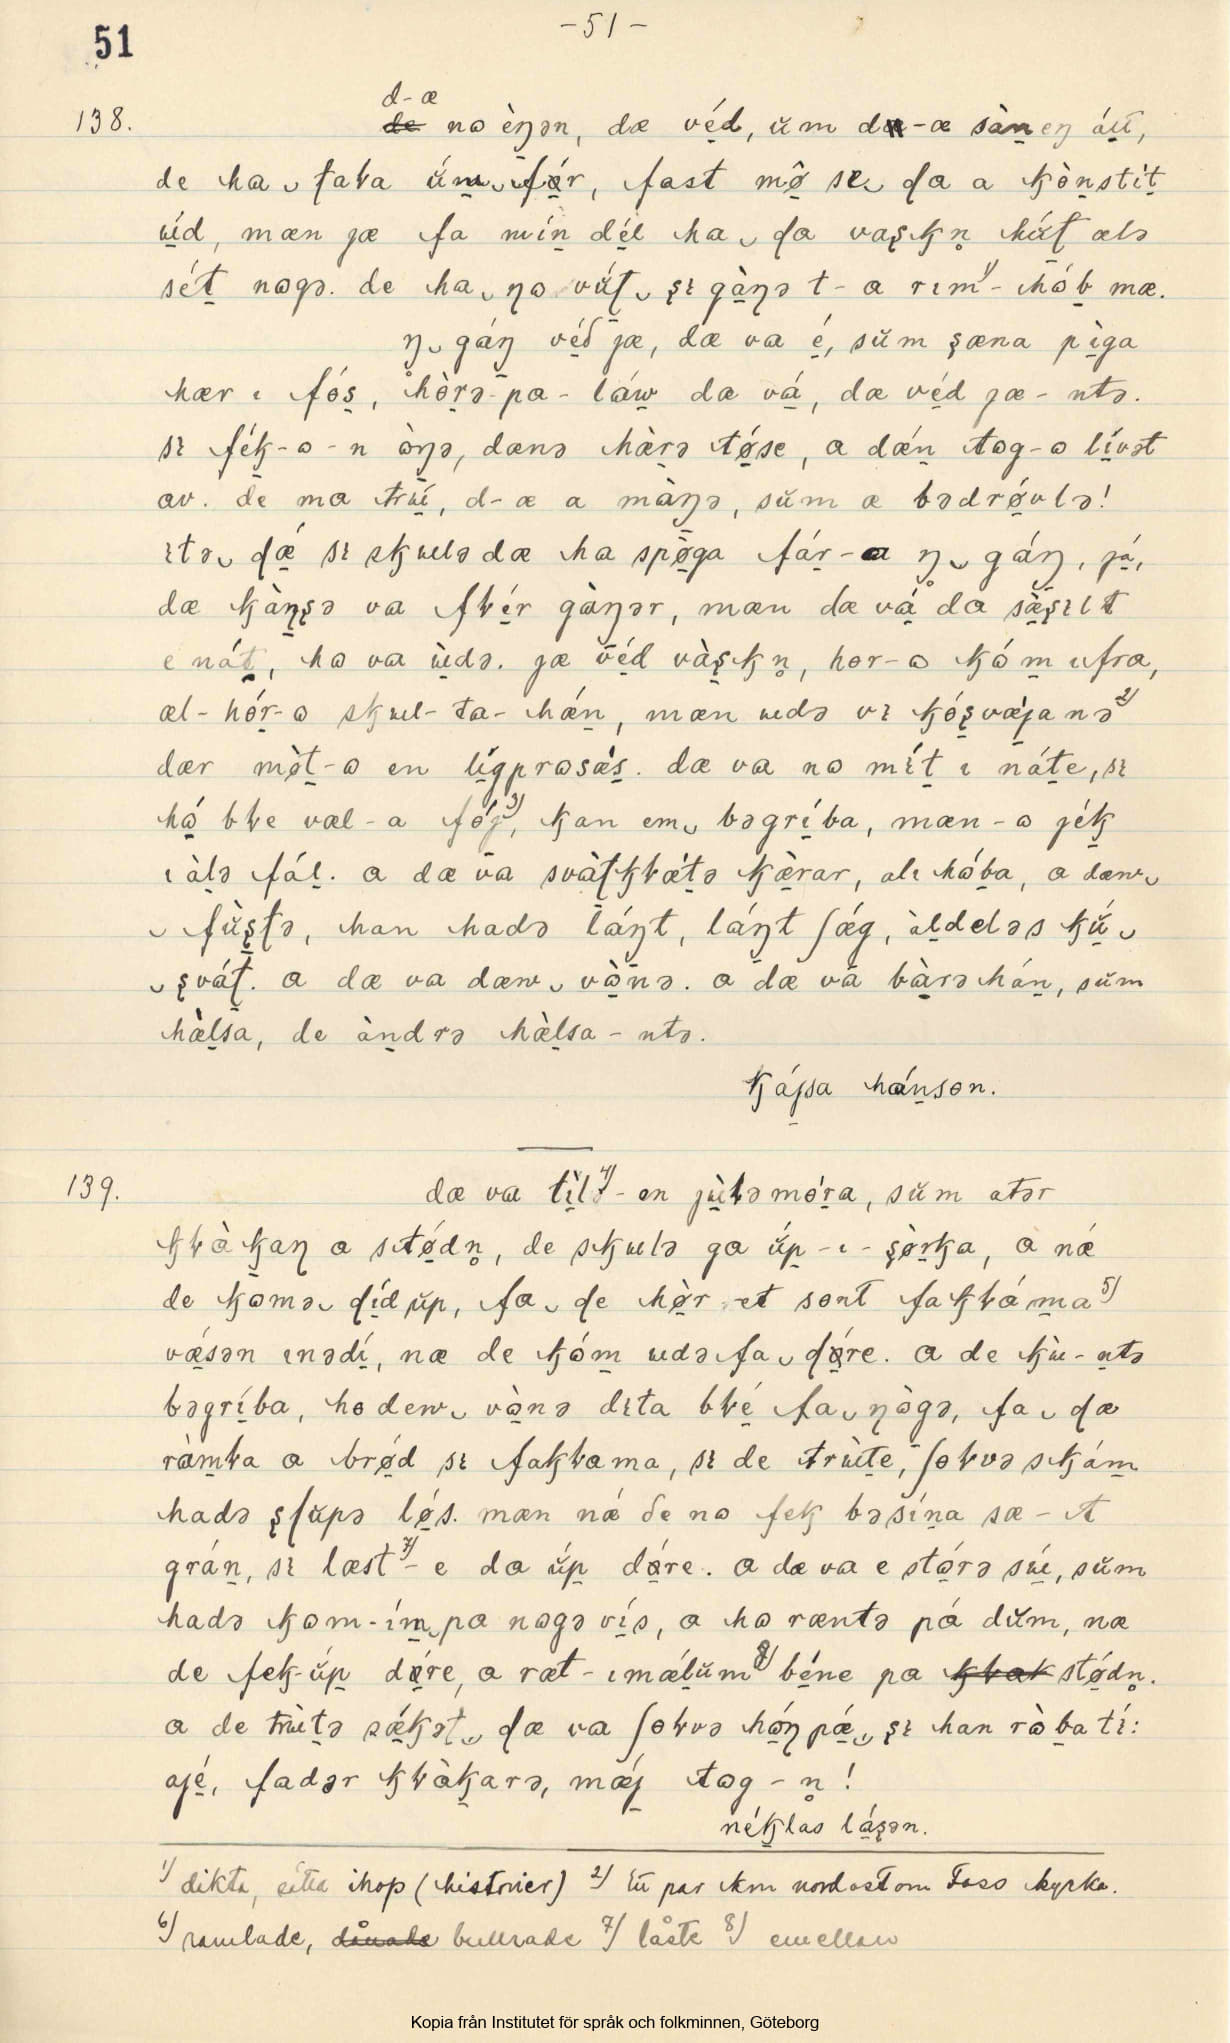 51
-51-
138.
d-æ
de nɷ èŋən, dæ véd, ŭm da-æ sàneŋ áu,
de ha taʟa úm fór, fast mø̂ se da a kònstit
úd, mæn jæ fa min dél ha da vaskn hát ælə
sét nɷgə. de ha ŋɷ vát sɩ gàŋə t-a rɩm¹⁾-ihɷ́b mæ.
ŋ gáŋ véd jæ, dæ va é, sŭm sæna pìga
hær ɩ fós, hòrə-pa-láw da vá, dæ véd jæ-ntə.
sɩ fék-ɷ-n ɷ̀ŋə, dænə hæ̀rə tǿse, a dǽn tɷg-ɷ lívət
av. de ma trú, d-æ a màŋə, sŭm æ bədrǿvlə!
ɩtə dǽ sɩ skulə dæ ha spø̀ga fár-a ŋ gáŋ, já,
dæ kàŋsə va fʟér gàŋər, mæn dæ vá da sæ̀sɩlt
e nát, hɷ va ùdə. jæ véd vàskn, hor-ɷ kɷ́m ɩfra,
æl-hór-ɷ skul-ta-hǽn, mæn udə vɩ kósvæ̀janə²⁾
dær mø̀t-ɷ en lígprɷsǽs. dæ va nɷ mít ɩ náte, sɩ
hɷ́ bʟe væl-a fój³⁾, kan em bəgríba, mæn-ɷ jék
ɩ àlə fál. a dæ va svàtkʟæ̀tə kæ̀rar, alɩ hɷ́ba, a dæm
fùstə, han hadə láŋt, láŋt ʃǽg, àldeləs kú
svát. a dæ va dæm vɷ̀nə. a dæ va bàrə hán, sŭm
hæ̀lsa, de àndrə hæ̀lsa-ntə.
kájsa hánson.
139.
dæ va tìlə⁴⁾-en jùʟəmóra, sŭm atər
kʟàkaŋ a stǿdn, de skulə ga úp-ɩ-sø̀rka, a nǽ
de kɷmə díd ŭp, fa de hø̀r et sont fakʟáma⁵⁾
vǽsən ɩnədí, næ de kɷ́m udə fa dǿre. a de kù-ntə
bəgríba, ho dem vɷ̀nə dɩta bʟé fa ŋɷ̀gə, fa dæ
ràmʟa a brǿd sɩ fakʟama, sɩ de trùte, ʃoʟvə skám
hadə sʃŭpə lǿs. mæn nǽ de nɷ fek bəsína sæ-t
grán, sɩ læst⁷⁾-e da úp dǿre. a dæ va e stɷ́rə sú, sŭm
hadə kɷm-ín pa nɷgə vís, a hɷ ræntə pá dŭm, næ
de fek-úp dǿre, a ræt-ɩmǽlŭm⁸⁾ béne pa kʟak stǿdn.
a de trùtə sǽkət dæ va ʃoʟvə hɷ́ŋ pǽ, sɩ han rɷ̀ba tɩ́:
ajé, fadər kʟàkarə, mǽj tɷg-n!
néklas lásən.
¹⁾ dikta, sätta ihop (historier) ²⁾ Ett par km nordost om Foss kyrka.
⁶⁾ ramlade, dånade bullrade ⁷⁾ låste ⁸⁾ emellan
Kopia från Institutet för språk och folkminnen, Göteborg